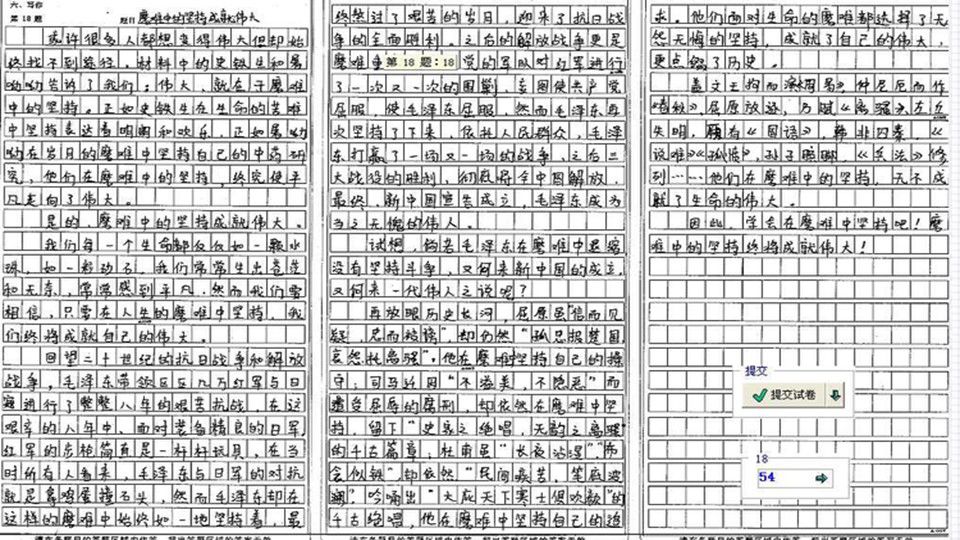 六、写作
第 18 题
题目 磨难中的坚持成就伟大
或许很多人都想变得伟大但却始
终找不到途径。材料中的史铁生和屠
呦呦告诉了我们：伟大，就在于磨难
中的坚持。正如史铁生在生命的苦难
中坚持表达着明朗和欢乐，正如屠呦
呦在岁月的磨难中坚持自己的中药研
究，他们在磨难中的坚持，终究使平
凡走向了伟大。
是的，磨难中的坚持成就伟大。
我们每一个生命都仅仅如一颗水
珠，如一粒动石，我们常常生出苍茫
和无奈，常常感到平凡。然而我们要
相信，只要在人生的磨难中坚持，我
们终将成就自己的伟大。
回望二十世纪的抗日战争和解放
战争，毛泽东带领区区几万红军与日
寇进行了整整八年的艰苦抗战，在这
艰苦的八年中，面对装备精良的日军，
红军的步枪简直是一杆杆玩具，在当
时所有人看来，毛泽东与日军的对抗
就是拿鸡蛋撞石头，然而毛泽东却在
这样的磨难中始终如一地坚持着，最
终熬过了艰苦的岁月，迎来了抗日战
争的全面胜利。之后的解放战争更是
磨难
第 18 题：18
党的军队对红军进行
了一次又一次的围剿，妄图使共产党
屈服，使毛泽东屈服，然而毛泽东再
次坚持了下来，依托人民群众，毛泽
东打赢了一场又一场的战争，之后三
大战役的胜利，彻底将全中国解放，
最终，新中国宣告成立，毛泽东成为
当之无愧的伟人。
试想，倘若毛泽东在磨难中退缩，
没有坚持斗争，又何来新中国的成立，
又何来一代伟人之说呢？
再放眼历史长河，屈原虽“信而见
疑，忠而被谤”却仍然“孤忠报楚国，
哀怨托离骚”，他在磨难中坚持自己的操
守；司马迁因“不溢美，不隐恶”而
遭受屈辱的腐刑，却依然在磨难中坚
持，留下“史家之绝唱，无韵之离骚”
的千古篇章；杜甫虽“长夜沾湿”，布
衾似铁”却依然“民间疾苦，笔底波
澜”吟诵出“大庇天下寒士俱欢颜”的
千古绝唱，他在磨难中坚持自己的追
求。他们面对生命的磨难都选择了无
怨无悔的坚持，成就了自己的伟大，
更点缀了历史。
盖文王拘而演《周易》，仲尼厄而作
《春秋》屈原放逐，乃赋《离骚》左丘
失明，厥有《国语》，韩非囚秦，《
说难》《孤愤》，孙子膑脚，《兵法》修
列……他们在磨难中的坚持，无不成
就了生命的伟大。
因此，学会在磨难中坚持吧！磨
难中的坚持终将成就伟大！
提交
提交试卷
18
54